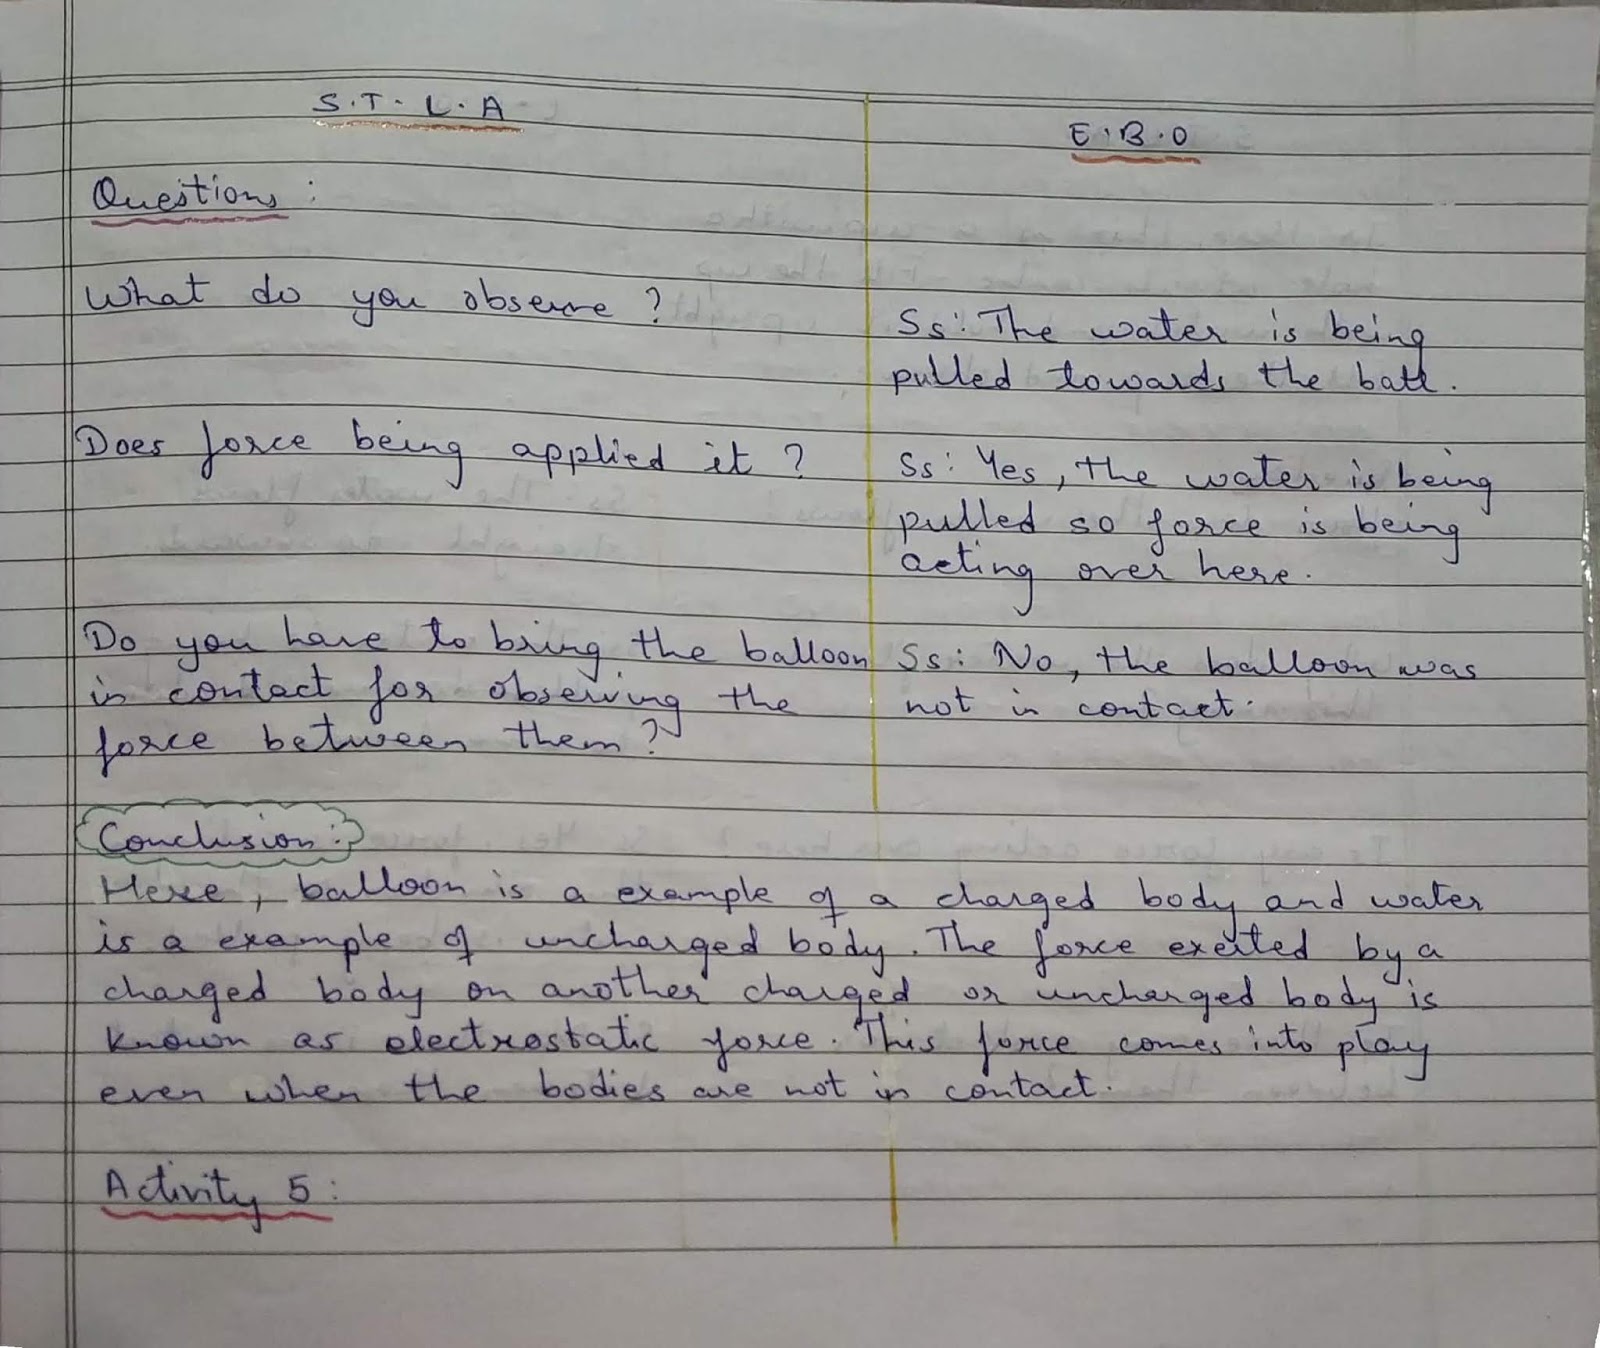 S.T.L.A
E.B.O
Questions:
What do you observe?
Ss: The water is being
pulled towards the ball.
Does force being applied it?
Ss: Yes, the water is being
pulled so force is being
acting over here.
Do you have to bring the balloon
in contact for observing the
force between them?
Ss: No, the balloon was
not in contact.
Conclusion:
Here, balloon is a example of a charged body and water
is a example of uncharged body. The force exerted by a
charged body on another charged or uncharged body is
known as electrostatic force. This force comes into play
even when the bodies are not in contact.
Activity 5: